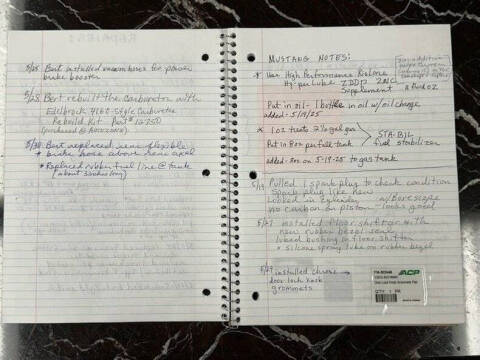 5/25 Bert installed vacuum hoses for power
brake booster
5/28 Bert rebuilt the Carburetor with
Edelbrock 4160-Style Carburetor
Rebuild Kit Part# 12750
(purchased @ Autozone)
5/30 Bert replaced rear flexible
brake hose above rear axel
• Replaced rubber fuel line @ tank
(about 3 inches long)
MUSTANG NOTES:
* Use High Performance
Hy-per Lube ZDDP ZINC
Supplement
Put in oil - 1 bottle in oil w/oil change
added - 5/19/25
* 1oz treats 2½ gal gas
Put in 8oz per full tank
added - 8oz on 5-19-25 to gas tank
STA-BIL
fuel stabilizer
5/19 Pulled 1 spark plug to check condition
Spark plug like new
Looked in cylinder w/Borescope
no carbon on piston - looks good!
5/27 installed floor shift trim with
new rubber bezel seal
lubed bushing on floor shifter
• silicone spray lube on rubber bezel
5/29 installed chrome
door lock knob
grommets
ACP
QTY: 1 PR